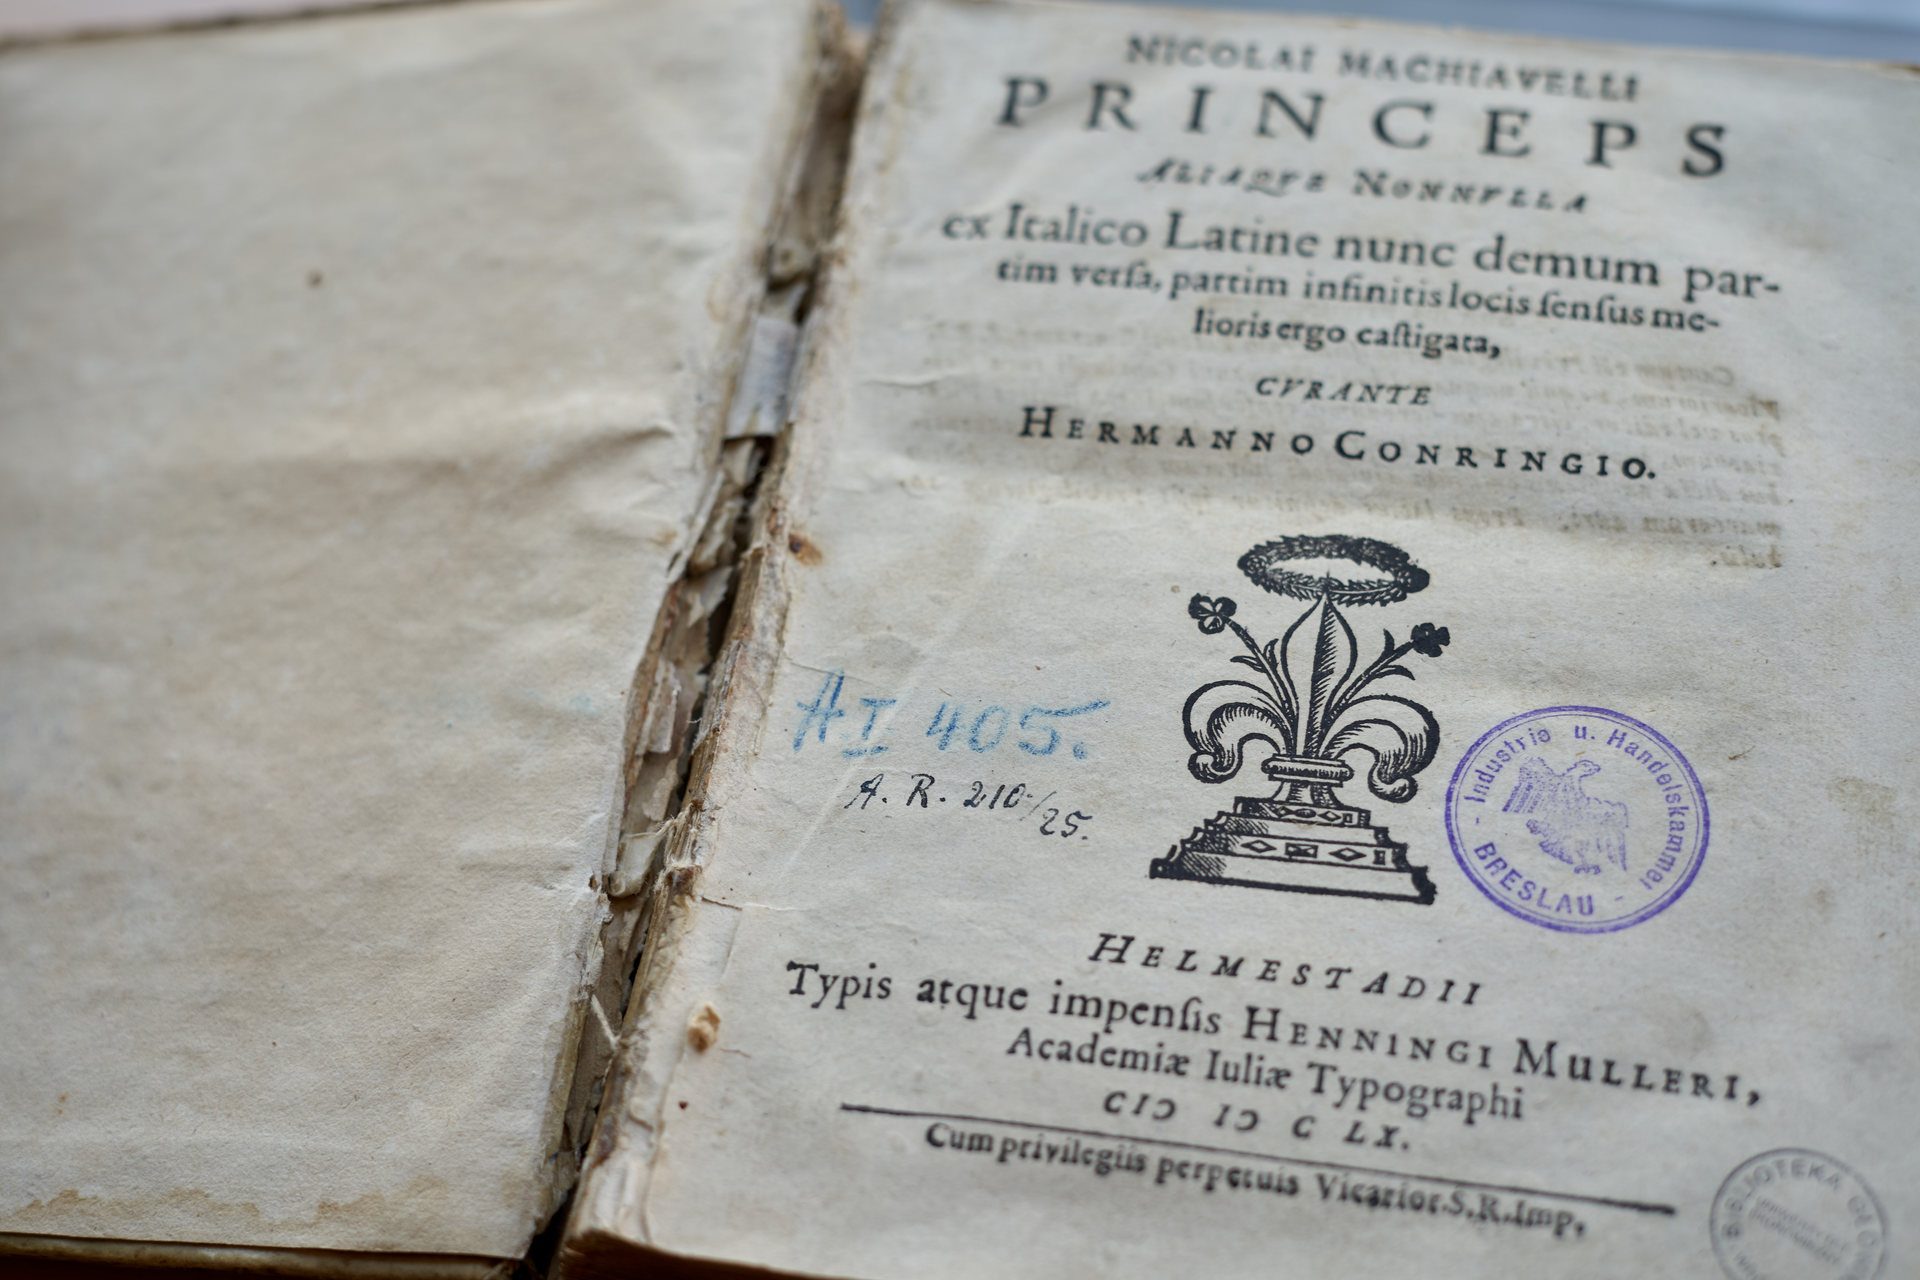 NICOLAI MACHIAVELLI
PRINCEPS
ALIAQVE NONNVLLA
ex Italico Latine nunc demum par-
tim verſa, partim infinitis locis ſenſus me-
lioris ergo caſtigata,
CVRANTE
HERMANNO CONRINGIO.
AI 405.
A. R. 210/25.
Industrie u. Handelskammer
- BRESLAU -
HELMESTADII
Typis atque impenſis HENNINGI MULLERI,
Academiæ Iuliæ Typographi
CIƆ IƆ C LX.
Cum privilegiis perpetuis Vicarior. S. R. Imp.
BIBLIOTEKA